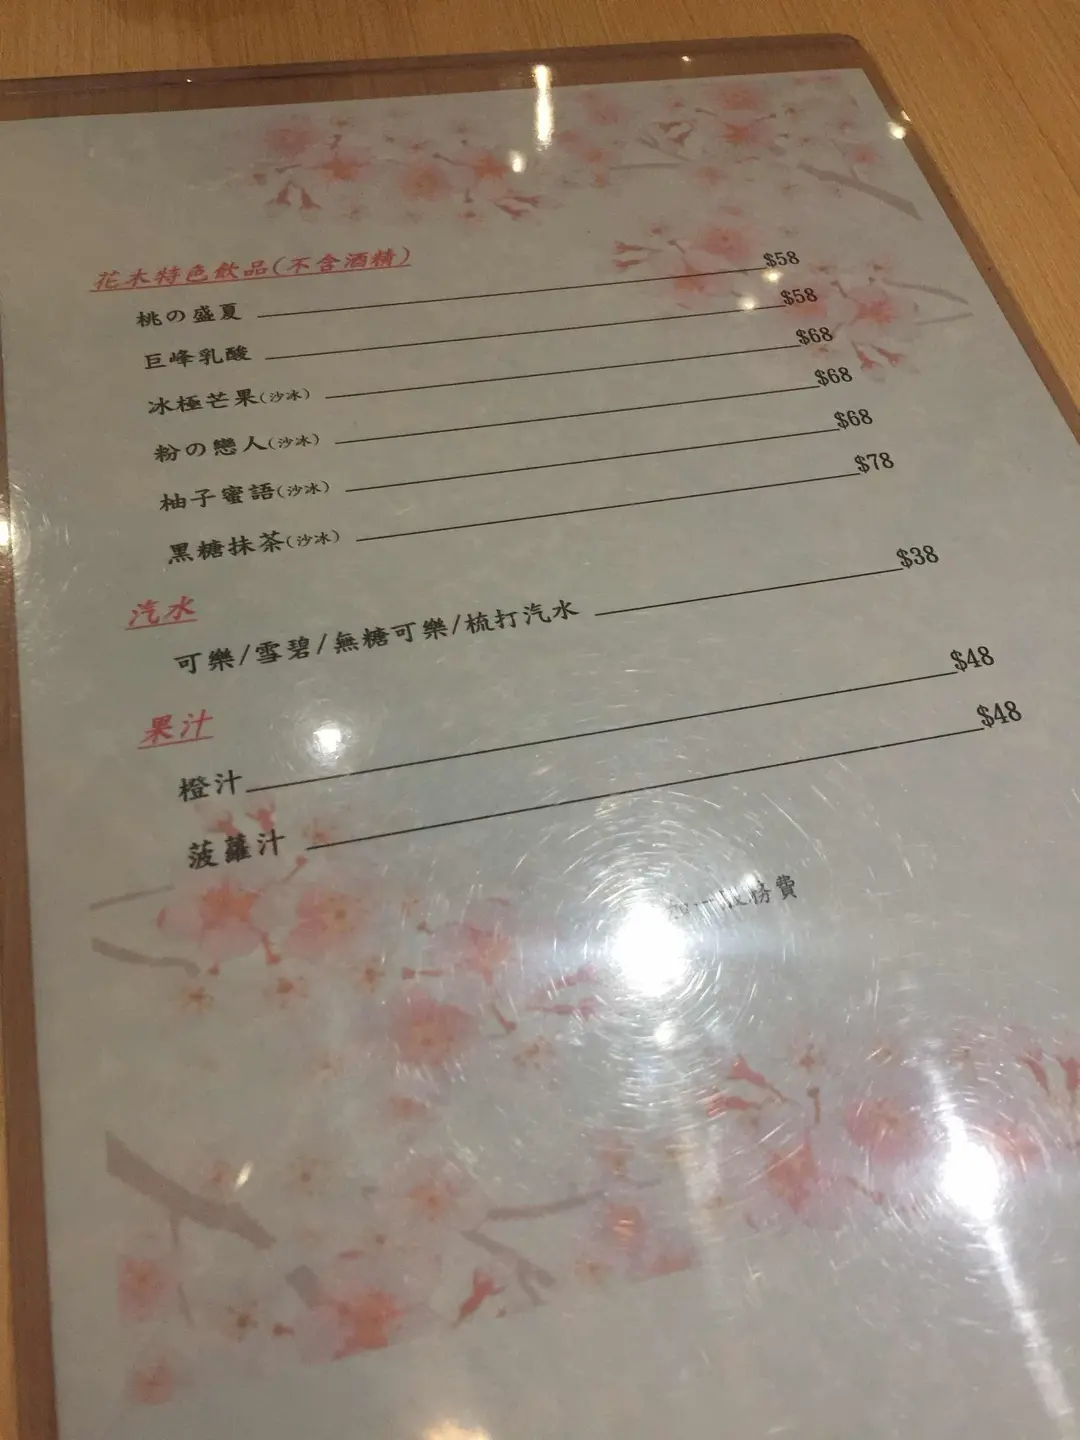 花木特色飲品(不含酒精)
桃の盛夏 $58
巨峰乳酸 $58
冰極芒果(沙冰) $68
粉の戀人(沙冰) $68
柚子蜜語(沙冰) $68
黑糖抹茶(沙冰) $78
汽水
可樂/雪碧/無糖可樂/梳打汽水 $38
果汁
橙汁 $48
菠蘿汁 $48
加一服務費